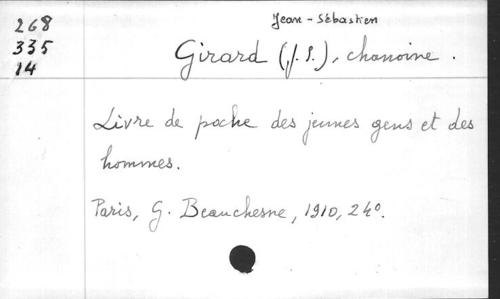 268
335
14
Jean-Sébastien
Girard (J.S.), chanoine.
Livre de poche des jeunes gens et des
hommes.
Paris, G. Beauchesne, 1910, 24º.